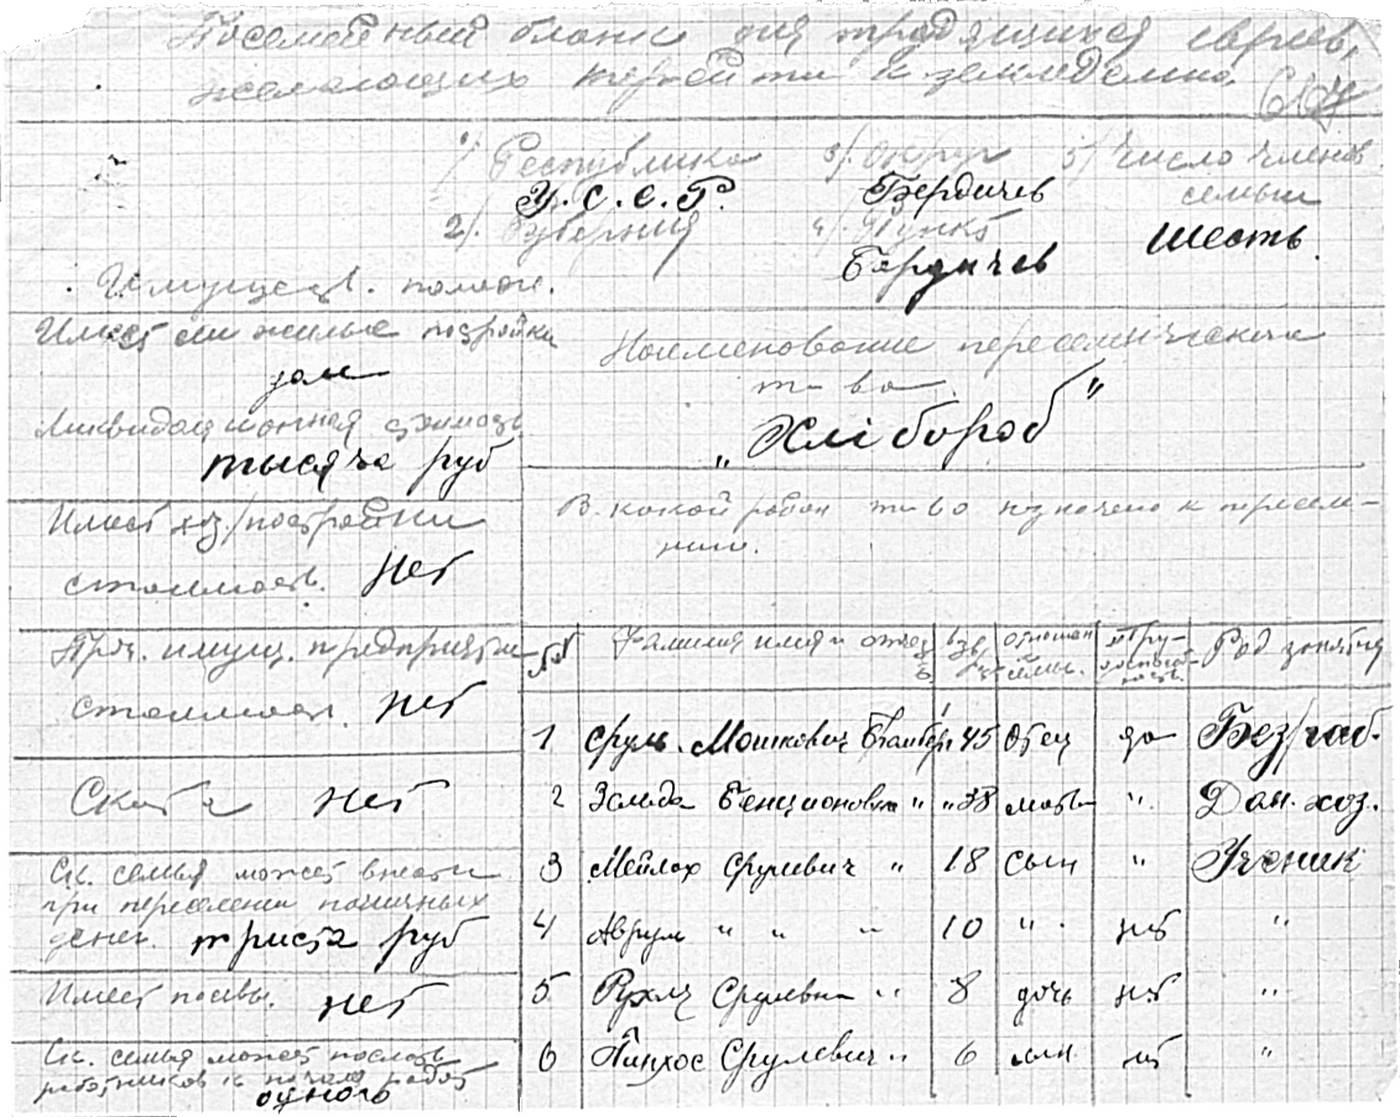 Посемейный бланк для трудящихся евреев,
желающих перейти к земледелию.
1/. Республика 3/. Округ 5/ Число членов
У.С.С.Р. Бердичев семьи
2/. Губерния 4/. Пункт Шесть.
Бердичев
Имуществ. полож.
Имеет ли жилые постройки
Наименование переселенческого
т-ва.
Ликвидационная стоимость
„Хлібороб"
тысяча руб
Имеет хоз./постройки
В какой район т-во назначено к пересел-
нию.
стоимость. Нет
Проч. имущ. предприятия
№№ Фамилия имя и отчество Возраст Отношен. к семье. Род занятия
стоимость. Нет
1 Сруль Мошкович 45 Отец да Безраб.
2 Зельда Бенционовна " " 38 мать " Дом. хоз.
Скота нет
3 Мейлах Срулевич " 18 Сын " Ученик
Ск. семья может внести
при переселении наличных
денег. триста руб
4 Аврум " " " 10 " нет "
5 Рухля Срулевна " 8 дочь нет "
Имеет посевы. нет
6 Пинхос Срулевич " 6 сын нет "
Ск. семья может послать
работников к началу работ
одного